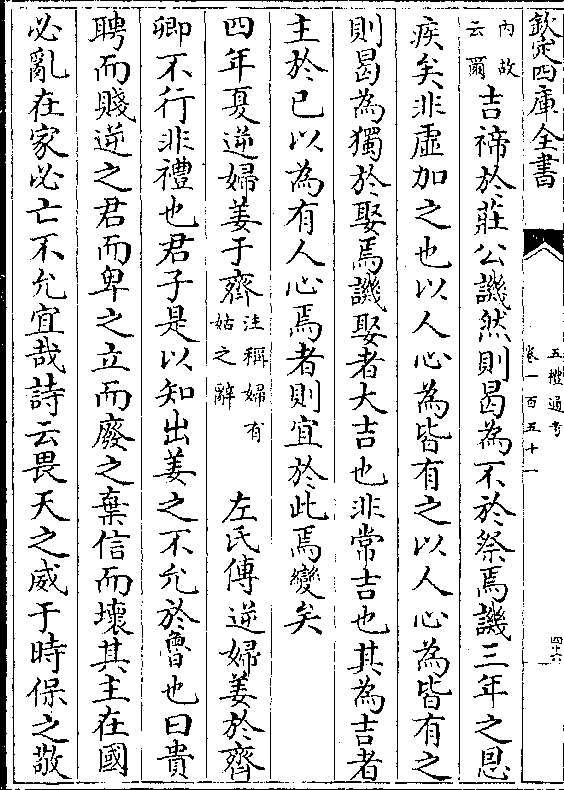 欽定四庫全書
五禮通考
卷一百五十一
四十六
內故
云爾
吉禘於莊公譏然則曷為不於祭焉譏三年之恩
疾矣非虛加之也以人心為皆有之以人心為皆有之
則曷為獨於娶焉譏娶者大吉也非常吉也其為吉者
主於已以為有人心焉者則宜於此焉變矣
四年夏逆婦姜于齊
注稱婦有
姑之辭
左氏傳逆婦姜於齊
卿不行非禮也君子是以知出姜之不允於魯也曰貴
聘而賤逆之君而卑之立而廢之棄信而壞其主在國
必亂在家必亡不允宜哉詩云畏天之威于時保之敬